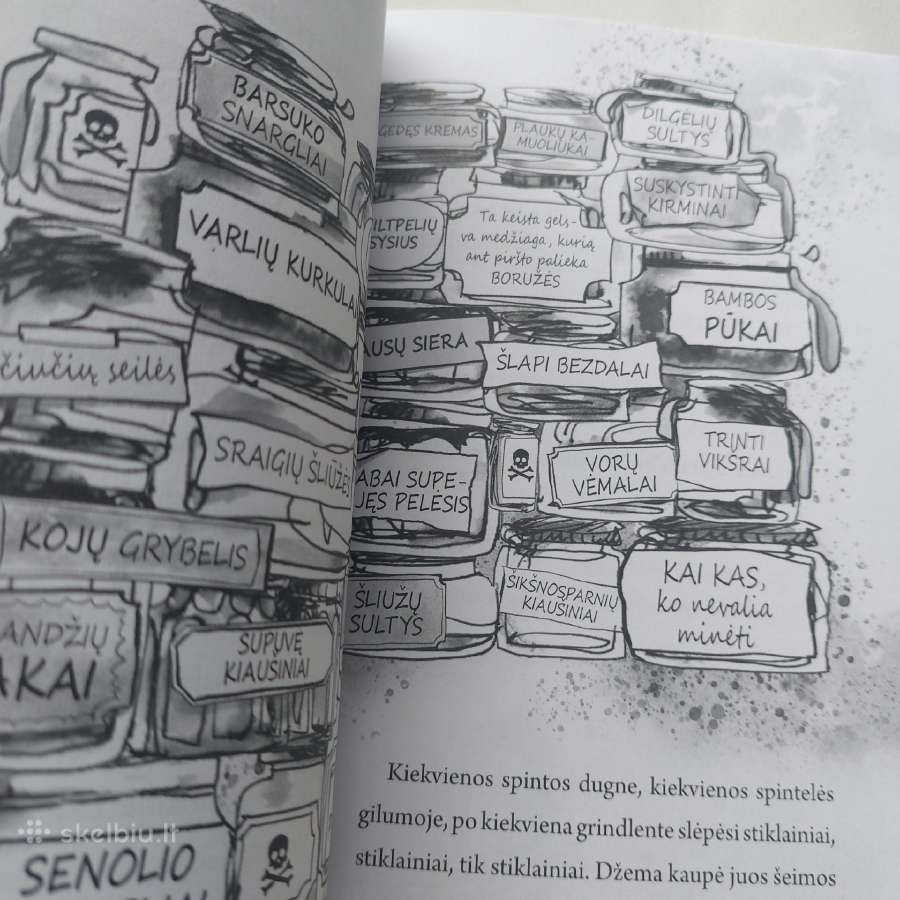 BARSUKO
SNARGLIAI
VARLIŲ KURKULAI
čiučių seilės
SRAIGIŲ ŠLIUŽĖS
KOJŲ GRYBELIS
SUPUVĘ
KIAUŠINIAI
SENOLIO
KREMAS
PLAUKŲ KA-
MUOLIUKAI
DILGĖLIŲ
SULTYS
SUSKYSTINTI
KIRMINAI
Ta keista gels-
va medžiaga, kurią
ant piršto palieka
BORUŽĖS
BAMBOS
PŪKAI
AUSŲ SIERA
ŠLAPI BEZDALAI
ABAI SUPE-
JĘS PELĖSIS
VORŲ
VĖMALAI
TRINTI
VIKŠRAI
ŠLIUŽŲ
SULTYS
ŠIKŠNOSPARNIŲ
KIAUŠINIAI
KAI KAS,
ko nevalia
minėti
Kiekvienos spintos dugne, kiekvienos spintelės
gilumoje, po kiekviena grindlente slėpėsi stiklainiai,
stiklainiai, tik stiklainiai. Džema kaupė juos šeimos
skelbiu.lt